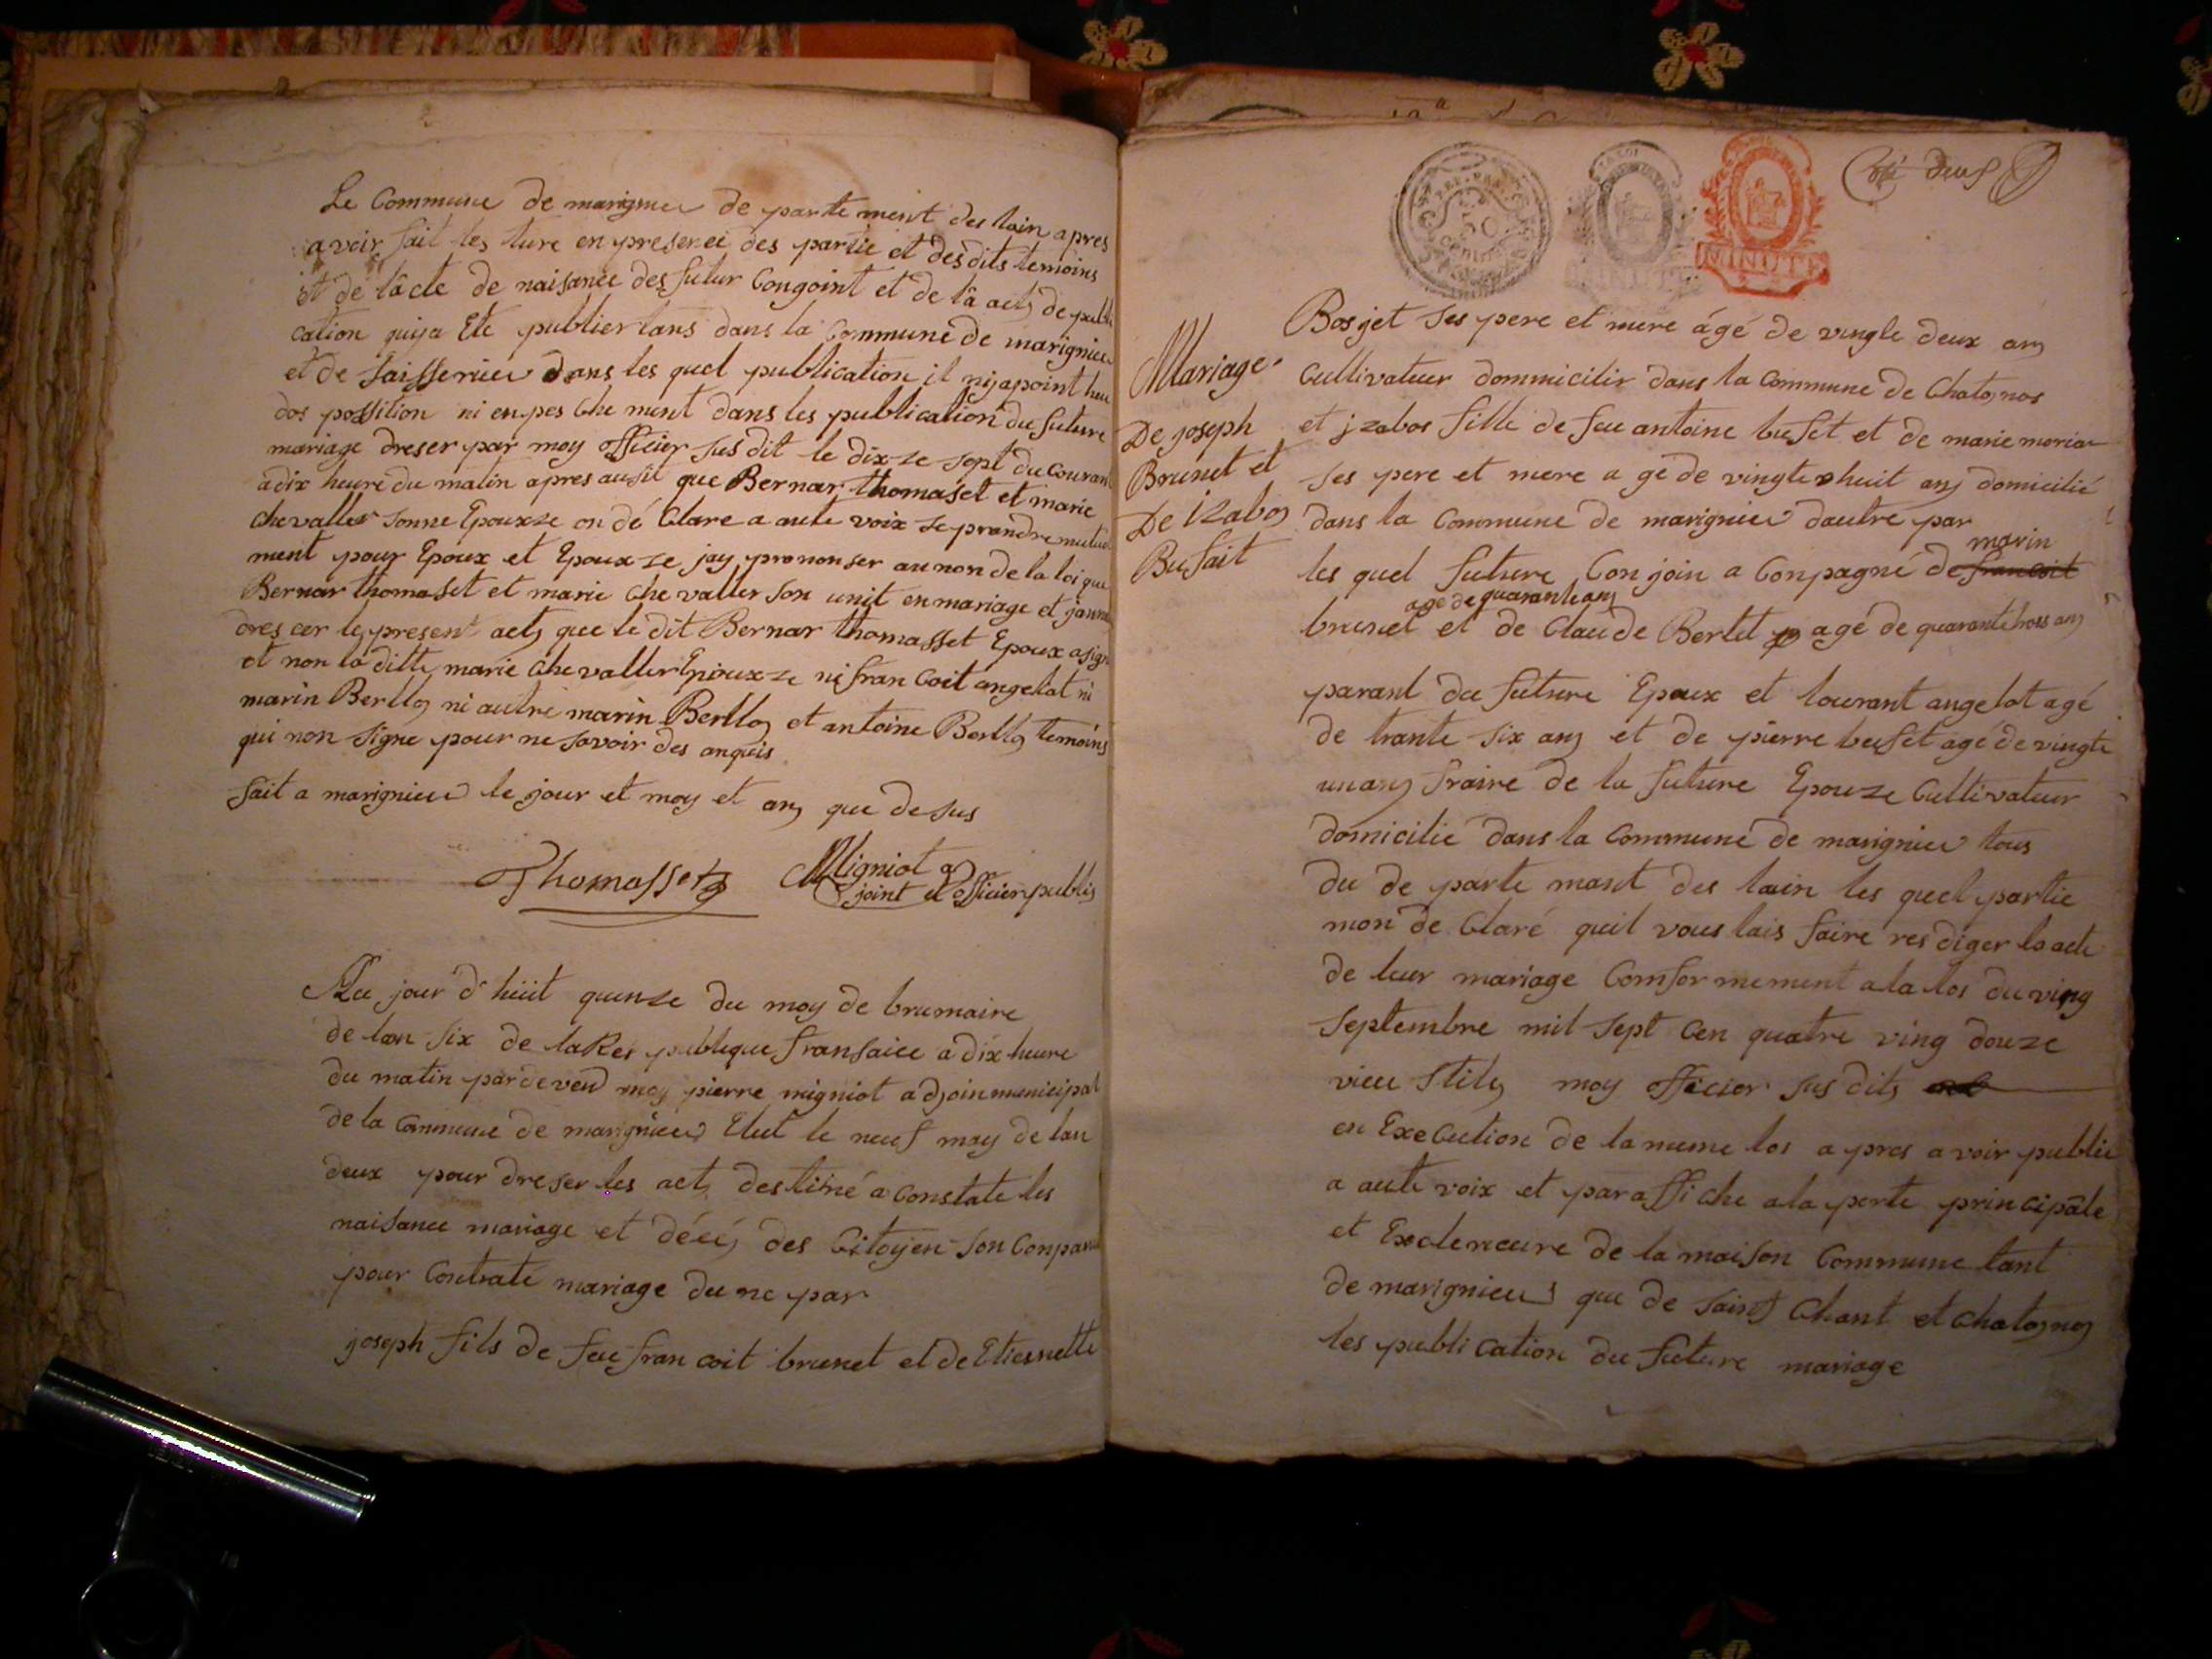 Le Commune de marignieu de parte ment des lain apres
avoir fait les ture en presenci des partie et des dits temoins
et de lacte de naisance des futur Congoint et de la act de publi
cation quiya Ete publier tans dans la Commune de marignieu
et de dans les quel publication il niyapoint heu
dos possition ni enpes Che ment dans les publication du future
mariage dreser par moy officier sus dit le dix-ze sept du Courant
adix heure du matin apres ausit que Bernar thomaset et marie
Chevaller sonne Epouxze on dé Clare a aute voix se prandre mutuel
ment pour Epoux et Epouxze jay prononser aunon de la loi que
Bernar thomaset et marie Chevaller son unit en mariage et
dres cer le present act que le dit Bernar thomasset Epoux asigne
et non la ditte marie Chevaller Epouxze ni fran Coit angelot ni
marin Bertlo ni autre marin Bertlo et antoine Bertlo temoins
qui non signe pour ne savoir des anquis
fait a marignieu le jour et moy et an que desus
Thomasset Migniot a
joint et officier publis
Au jour d'huit quinze du moy de brumaire
de lan six de laRes publique fransaice a dix heure
du matin pardeven moy pierre migniot adjoin municipal
de la Commune de marignieu Elut le neuf may de lan
deux pour dreser les act destiné a Constate les
naisance mariage et déce des Citoyen son Conparu
pour Contraté mariage du ne par
joseph fils de feu fran coit brunet et de Etiesnette
50
Centimes
MINUTE
MINUTE
deus
Mariage
De joseph
Brunet et
De Izabo
Bufait
Bosjet ses pere et mere ágé de vingte deux an
Cultivateur dommicilir dans la Commune de Chatonos
et jzabos fille de feu antoine bufet et de marie
ses pere et mere a ge de vingte huit an domicilié
dans la Commune de marignieu dautre par
marin
les quel future Con join a Conpagné de francoit
age de quarante an
brunet et de Claude Bertet agé de quarante an
parant du future Epoux et lourant angelot agé
de trante six an et de pierre bufet agé de vingte
unan fraire de la future Epouze Cultivateur
domicilié dans la Commune de marignieu tous
du de parte mant des lain les quel partie
mon de Claré quil vous lais faire res diger lo acte
de leur mariage Comfor mement a la los du ving
Septembre mil sept Cen quatre ving douze
vieu Stil moy officier sus dit
en Exe Cution de la meme los a pres avoir publie
a aute voix et par affi che a la porte prin cipale
et de la maison Commune tant
de marignieu que de saint Chant et Chatono
les publi Cation du future mariage